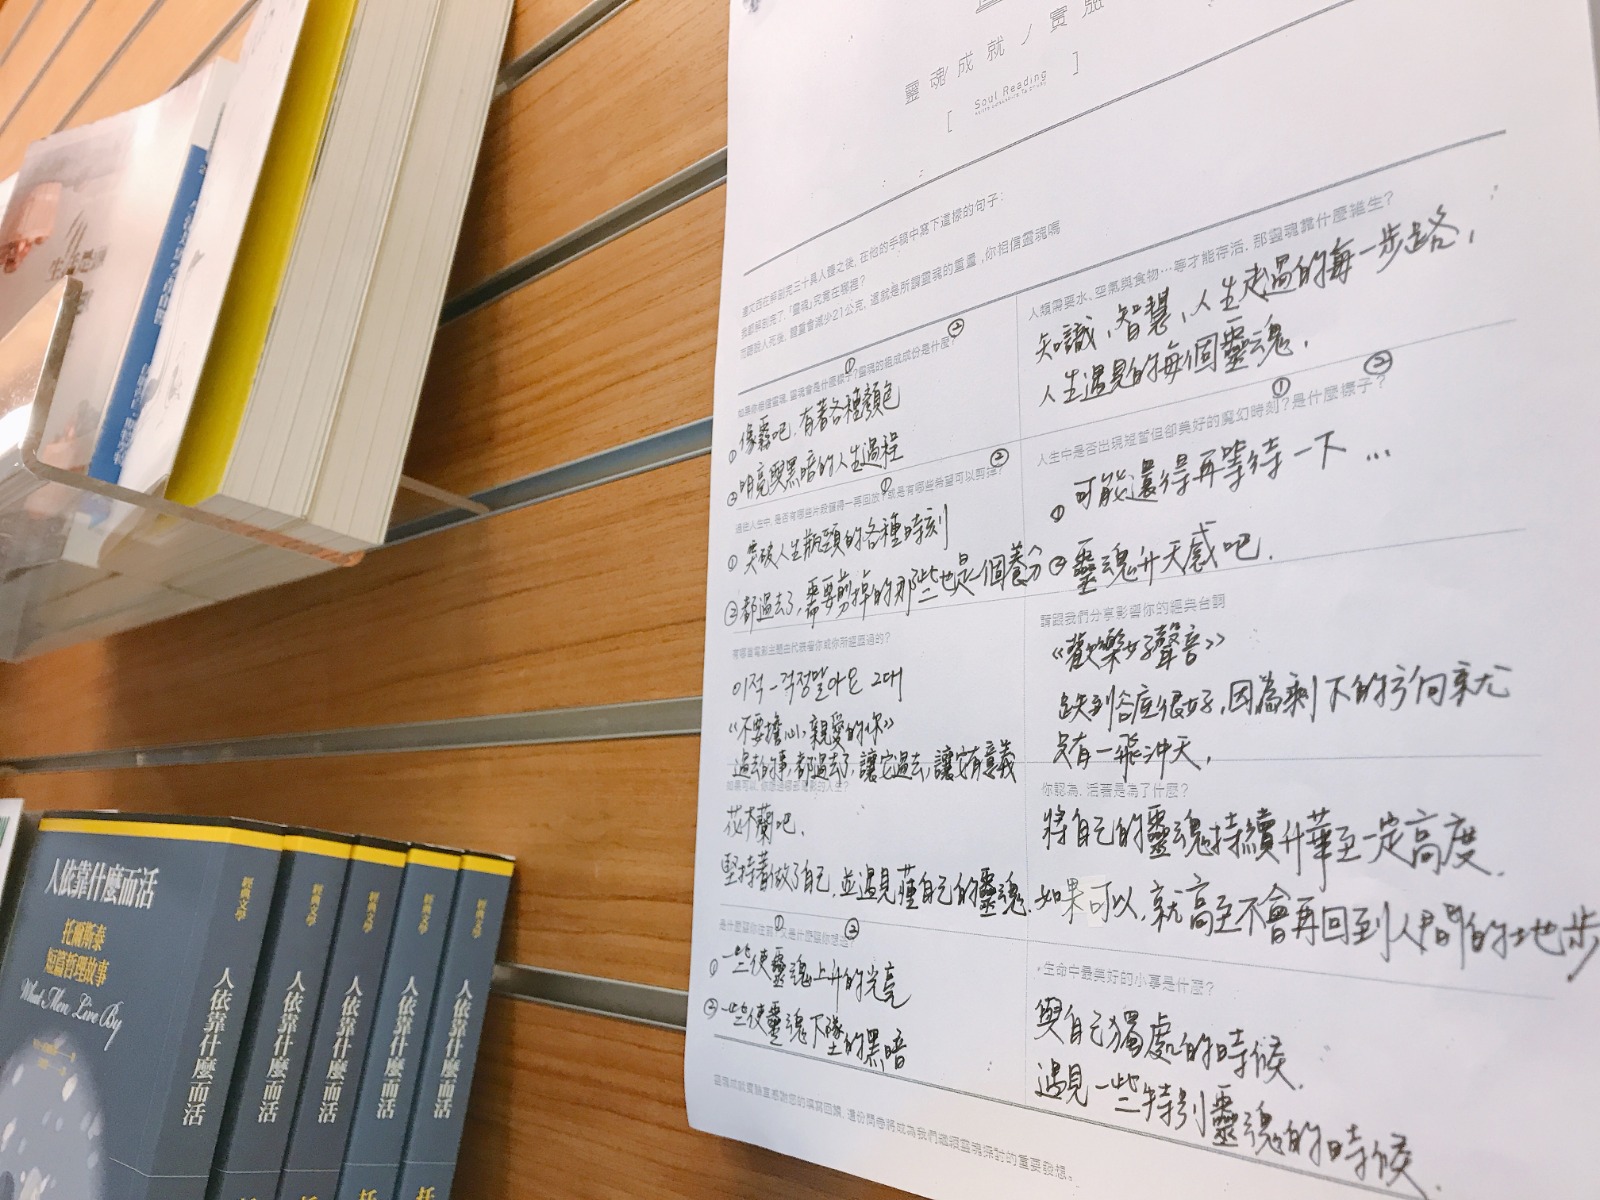 靈魂成就／實
[ Soul Reading ]
達文西在解剖完三十具人體之後，在他的手稿中寫下這樣的句子：
我都解剖完了，「靈魂」究竟在哪裡？
而聽說人死後，體重會減少21公克，這就是所謂靈魂的重量，你相信靈魂嗎
如果你相信靈魂，靈魂會是什麼樣子？靈魂的組成成份是什麼？
① ②
①像霧吧，有著各種顏色
②明亮與黑暗的人生過程
過往人生中，是否有哪些片段值得一再回放？或是有哪些希望可以剪掉？
① ②
①突破人生瓶頸的各種時刻
②都過去了，需要剪掉的那些也是一個養分
有哪些電影主題曲代表著你或你所經歷過的？
이적 - 걱정말아요 그대
《不要擔心，親愛的你》
過去的事，都過去了，讓它過去，讓它有意義
花木蘭吧，
堅持著做了自己，並遇見懂自己的靈魂。
① ②
①一些使靈魂上升的光亮
②一些使靈魂下墜的黑暗
人類需要水、空氣與食物…等才能存活，那靈魂靠什麼維生？
知識，智慧，人生走過的每一步路，
人生遇見的每個靈魂。
人生中是否出現短暫但卻美好的魔幻時刻？是什麼樣子？
① ②
①可能還得再等待一下…
②靈魂升天感吧。
請跟我們分享影響你的經典台詞
《歡樂好聲音》
跌到谷底很好，因為剩下的方向就尤
只有一飛沖天。
你認為，活著是為了什麼？
將自己的靈魂持續升華至一定高度。
如果可以，就高至不會再回到人間的地步
生命中最美好的小事是什麼？
與自己獨處的時候。
遇見一些特別靈魂的時候。
靈魂成就實驗室感謝您的填寫回饋，這份問卷將成為我們繼續靈魂探討的重要發想。
生活是
人依靠什麼而活
托爾斯泰
短篇哲理故事
What Men Live By
經典文學
人依靠什麼而活
托
經典文學
人依靠什麼而活
托
經典文學
人依靠什麼而活
托
經典文學
人依靠什麼而活
托
經典文學
人依靠什麼而活
托